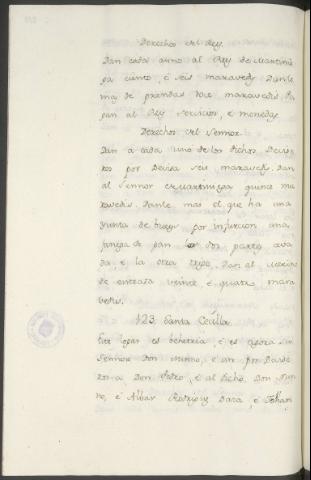 Derechos del Rey.
Dan cada anno al Rey de Martinie
ga ciento, é seis maravedis. Danle
mas de prendas doce maravedis, Pa
gan al Rey servicios, é monedas.
Derechos del Sennor.
Dan a cada uno de los dichos Devise
ros por Devisa seis maravedis, Dan
al Sennor en martiniega quince ma
ravedis. Danle mas el que ha una
yunta de bueys por infurcion una
fanega de pan los dos partes ceva
da é la otra trigo. Dan al merino
de entrada veinte é quatro mara
vedis.
123. Santa Cecilla
Este logar es behetria, é es agora su
Sennor Don Nunno, é son por Devise
ros a Don Pedro, é al dicho Don Nun
no, é Albar Rodriguez Daza, é Johan